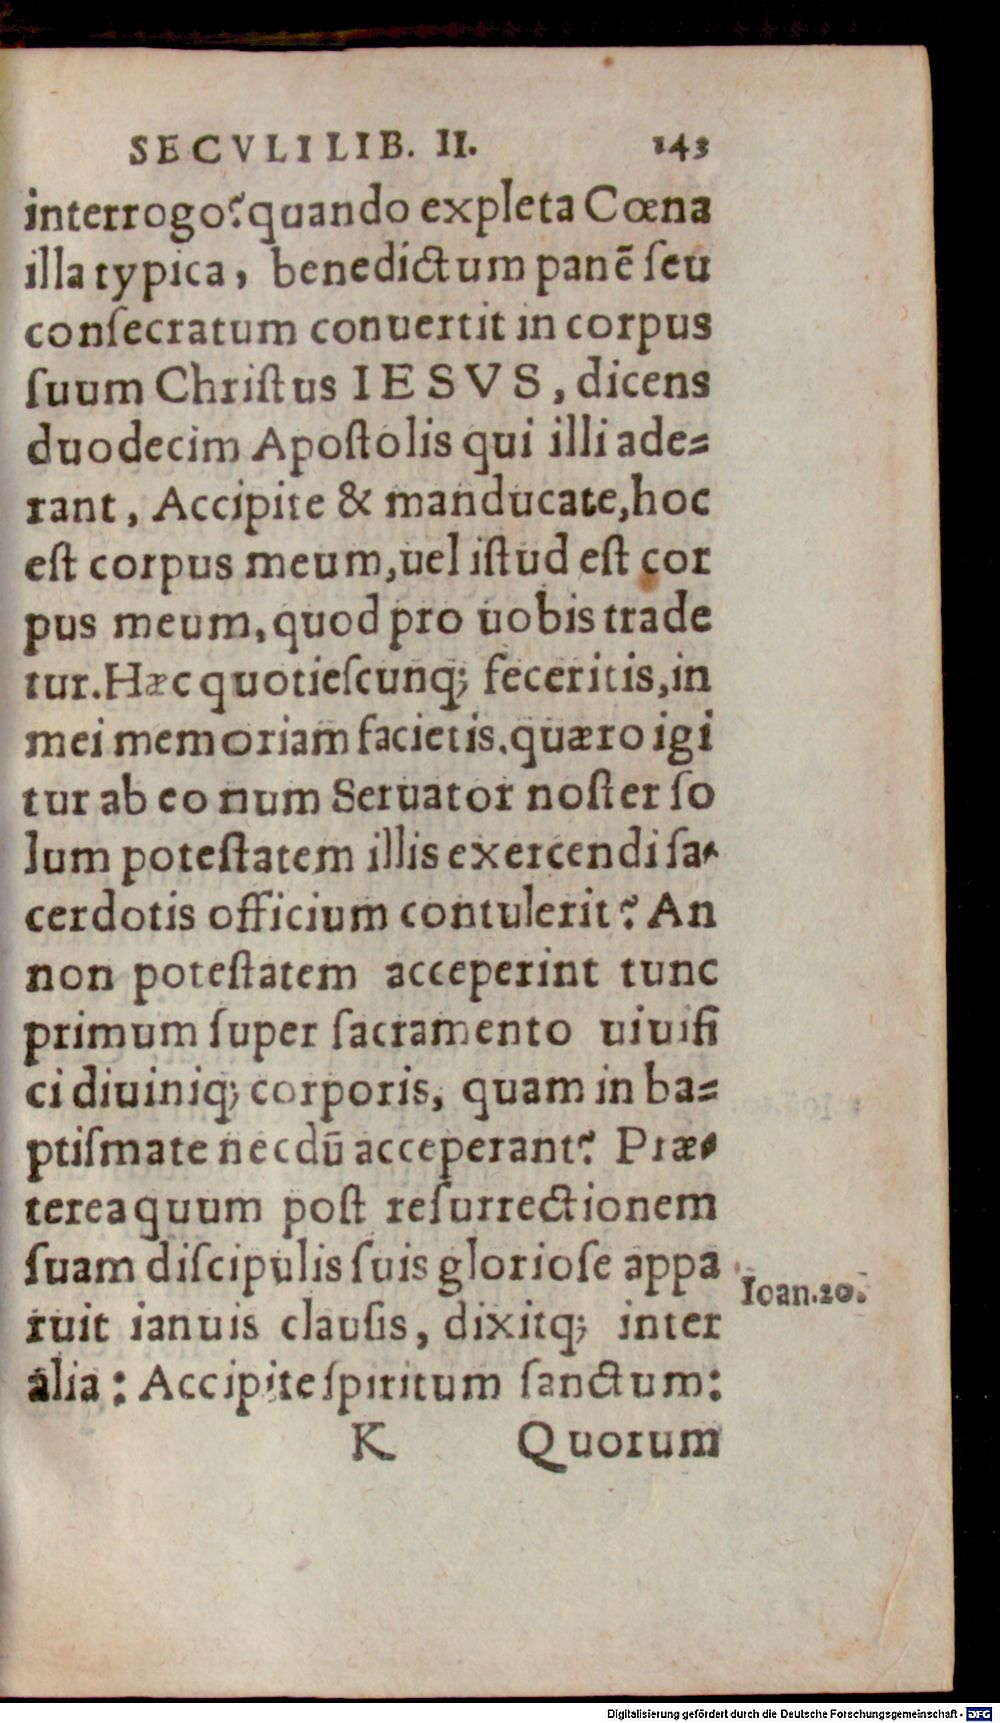 SECVLI LIB. II. 143
interrogo? quando expleta Cœna
illa typica, benedictum panē ſeu
conſecratum conuertit in corpus
ſuum Chriſtus IESVS, dicens
duodecim Apoſtolis qui illi ade=
rant, Accipite & manducate, hoc
eſt corpus meum, uel iſtud eſt cor
pus meum, quod pro uobis trade
tur. Hæc quotieſcunq; feceritis, in
mei memoriam facietis. quæro igi
tur ab eo num Seruator noſter ſo
lum poteſtatem illis exercendi ſa-
cerdotis officium contulerit? An
non poteſtatem acceperint tunc
primum ſuper ſacramento uiuifi
ci diuiniq; corporis, quam in ba=
ptiſmate necdū acceperant? Præ-
terea quum poſt reſurrectionem
ſuam diſcipulis ſuis glorioſe appa
ruit ianuis clauſis, dixitq; inter
alia: Accipite ſpiritum ſanctum:
Ioan.20.
K Quorum
Digitalisierung gefördert durch die Deutsche Forschungsgemeinschaft - DFG